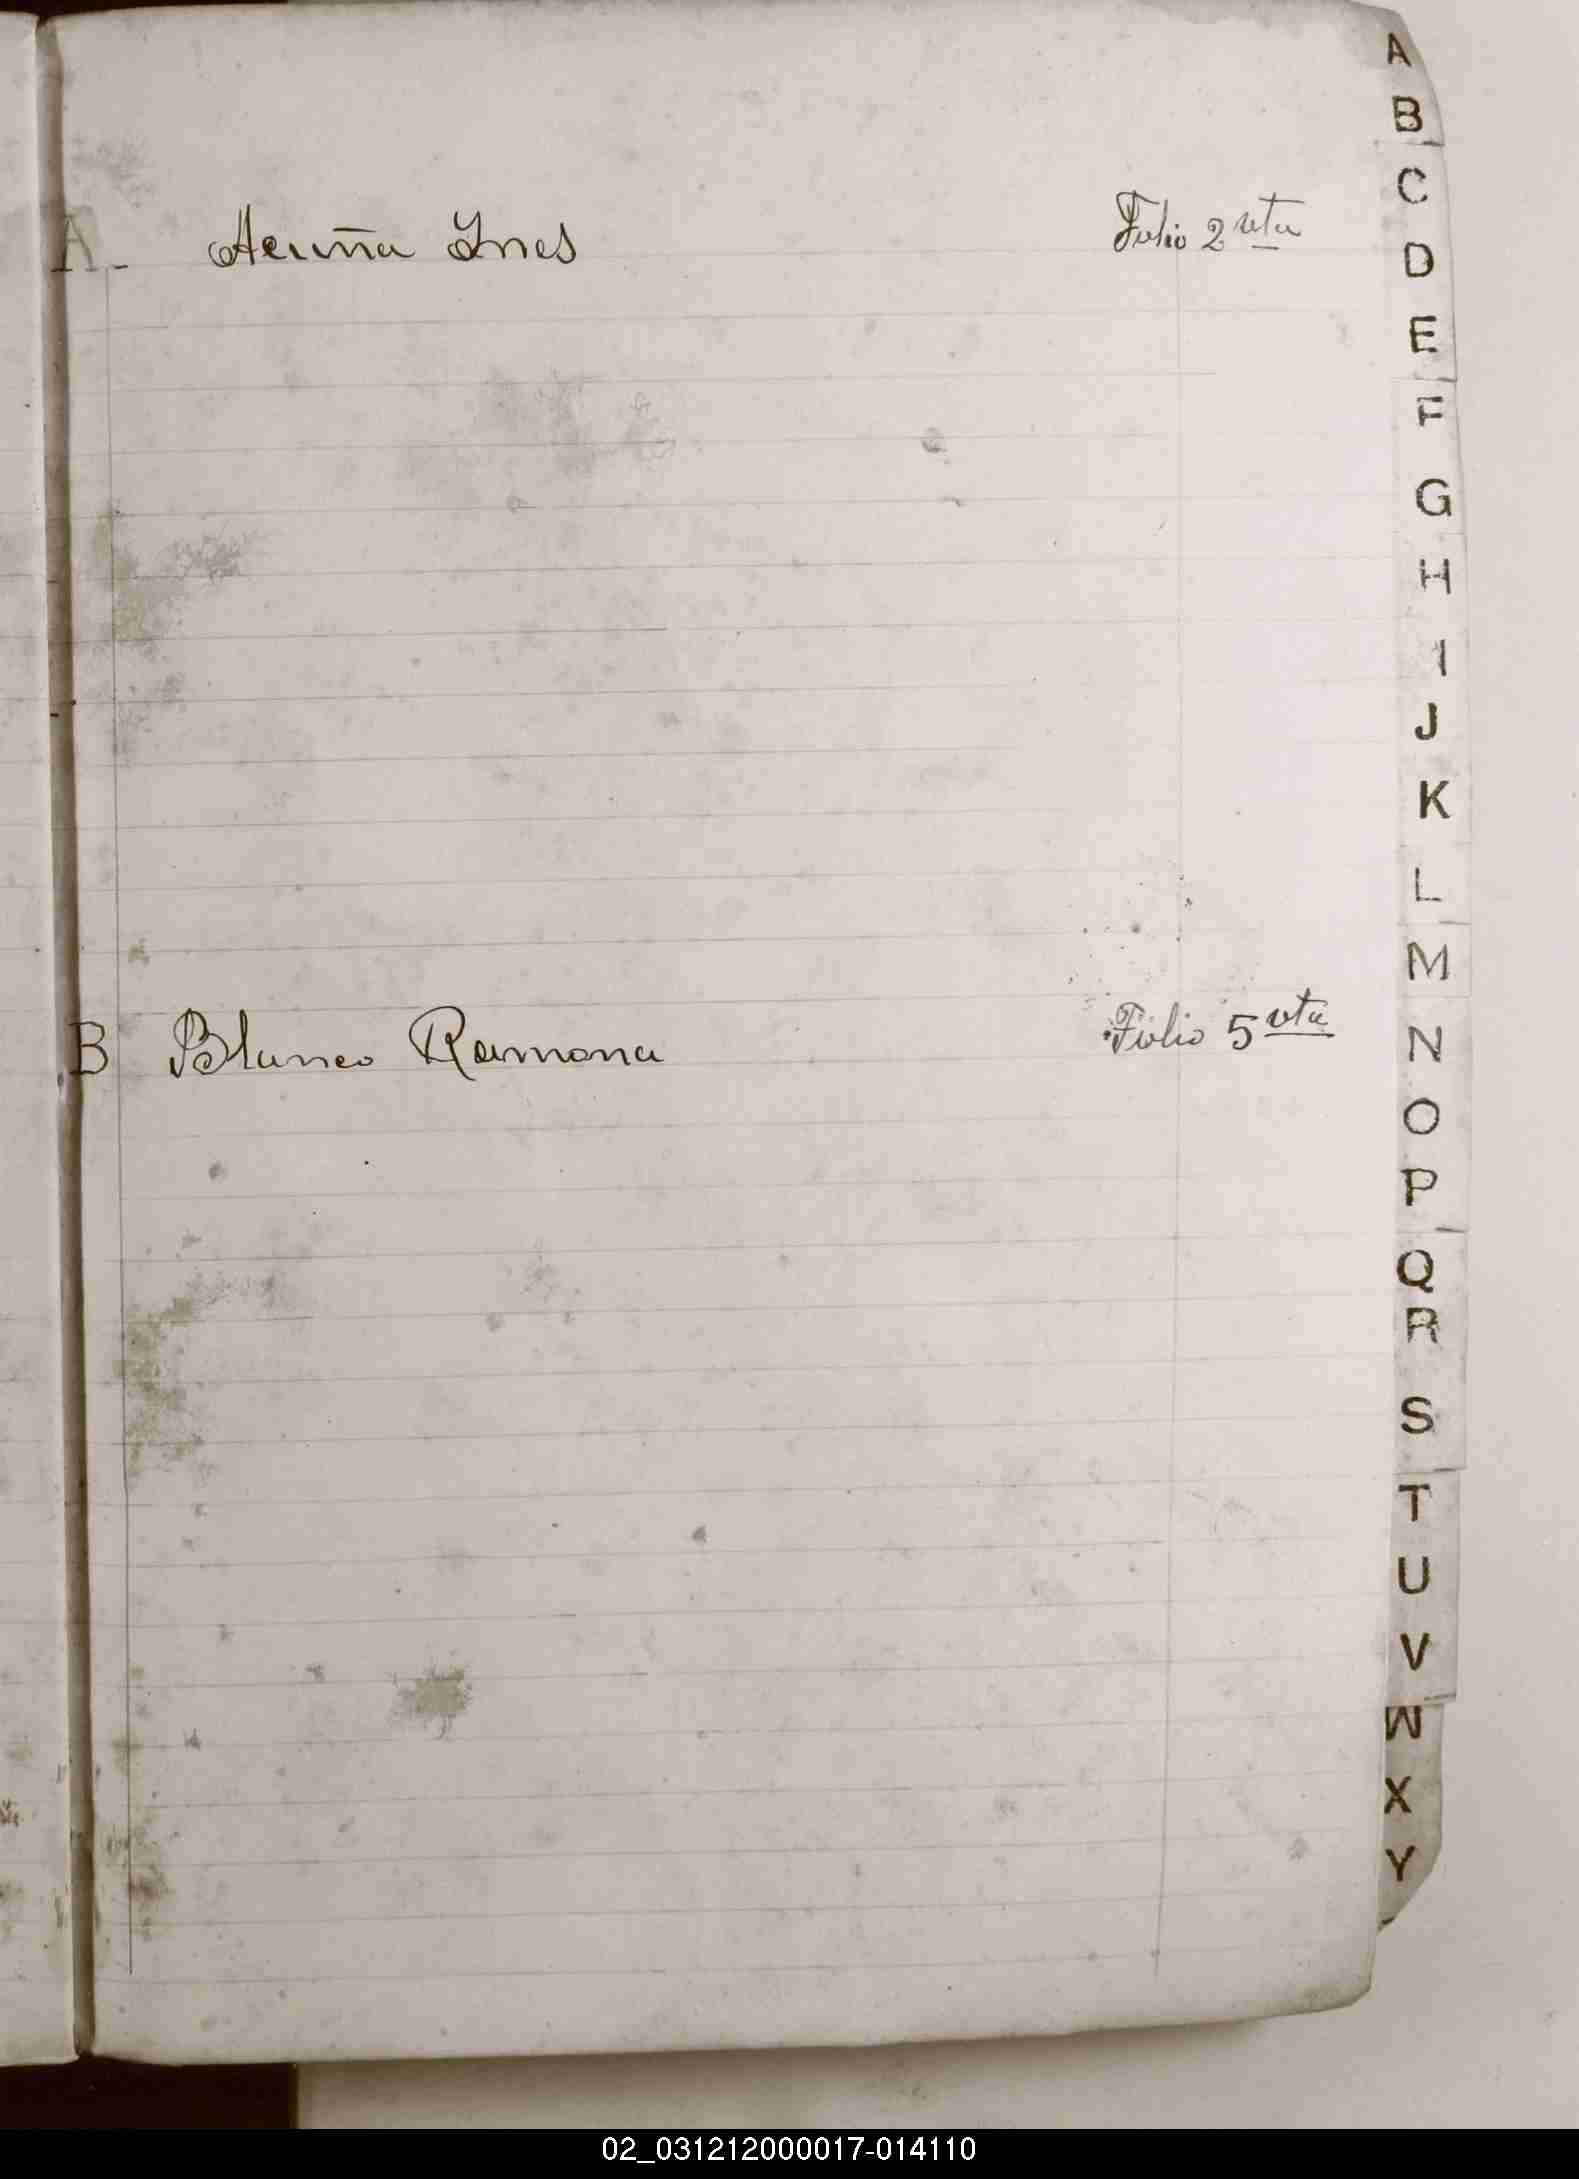 A.- Acuña Ines Folio 2 vta
B Blanco Ramona Folio 5 vta
A
B
C
D
E
F
G
H
I
J
K
L
M
N
O
P
Q
R
S
T
U
V
W
X
Y
02_031212000017-014110